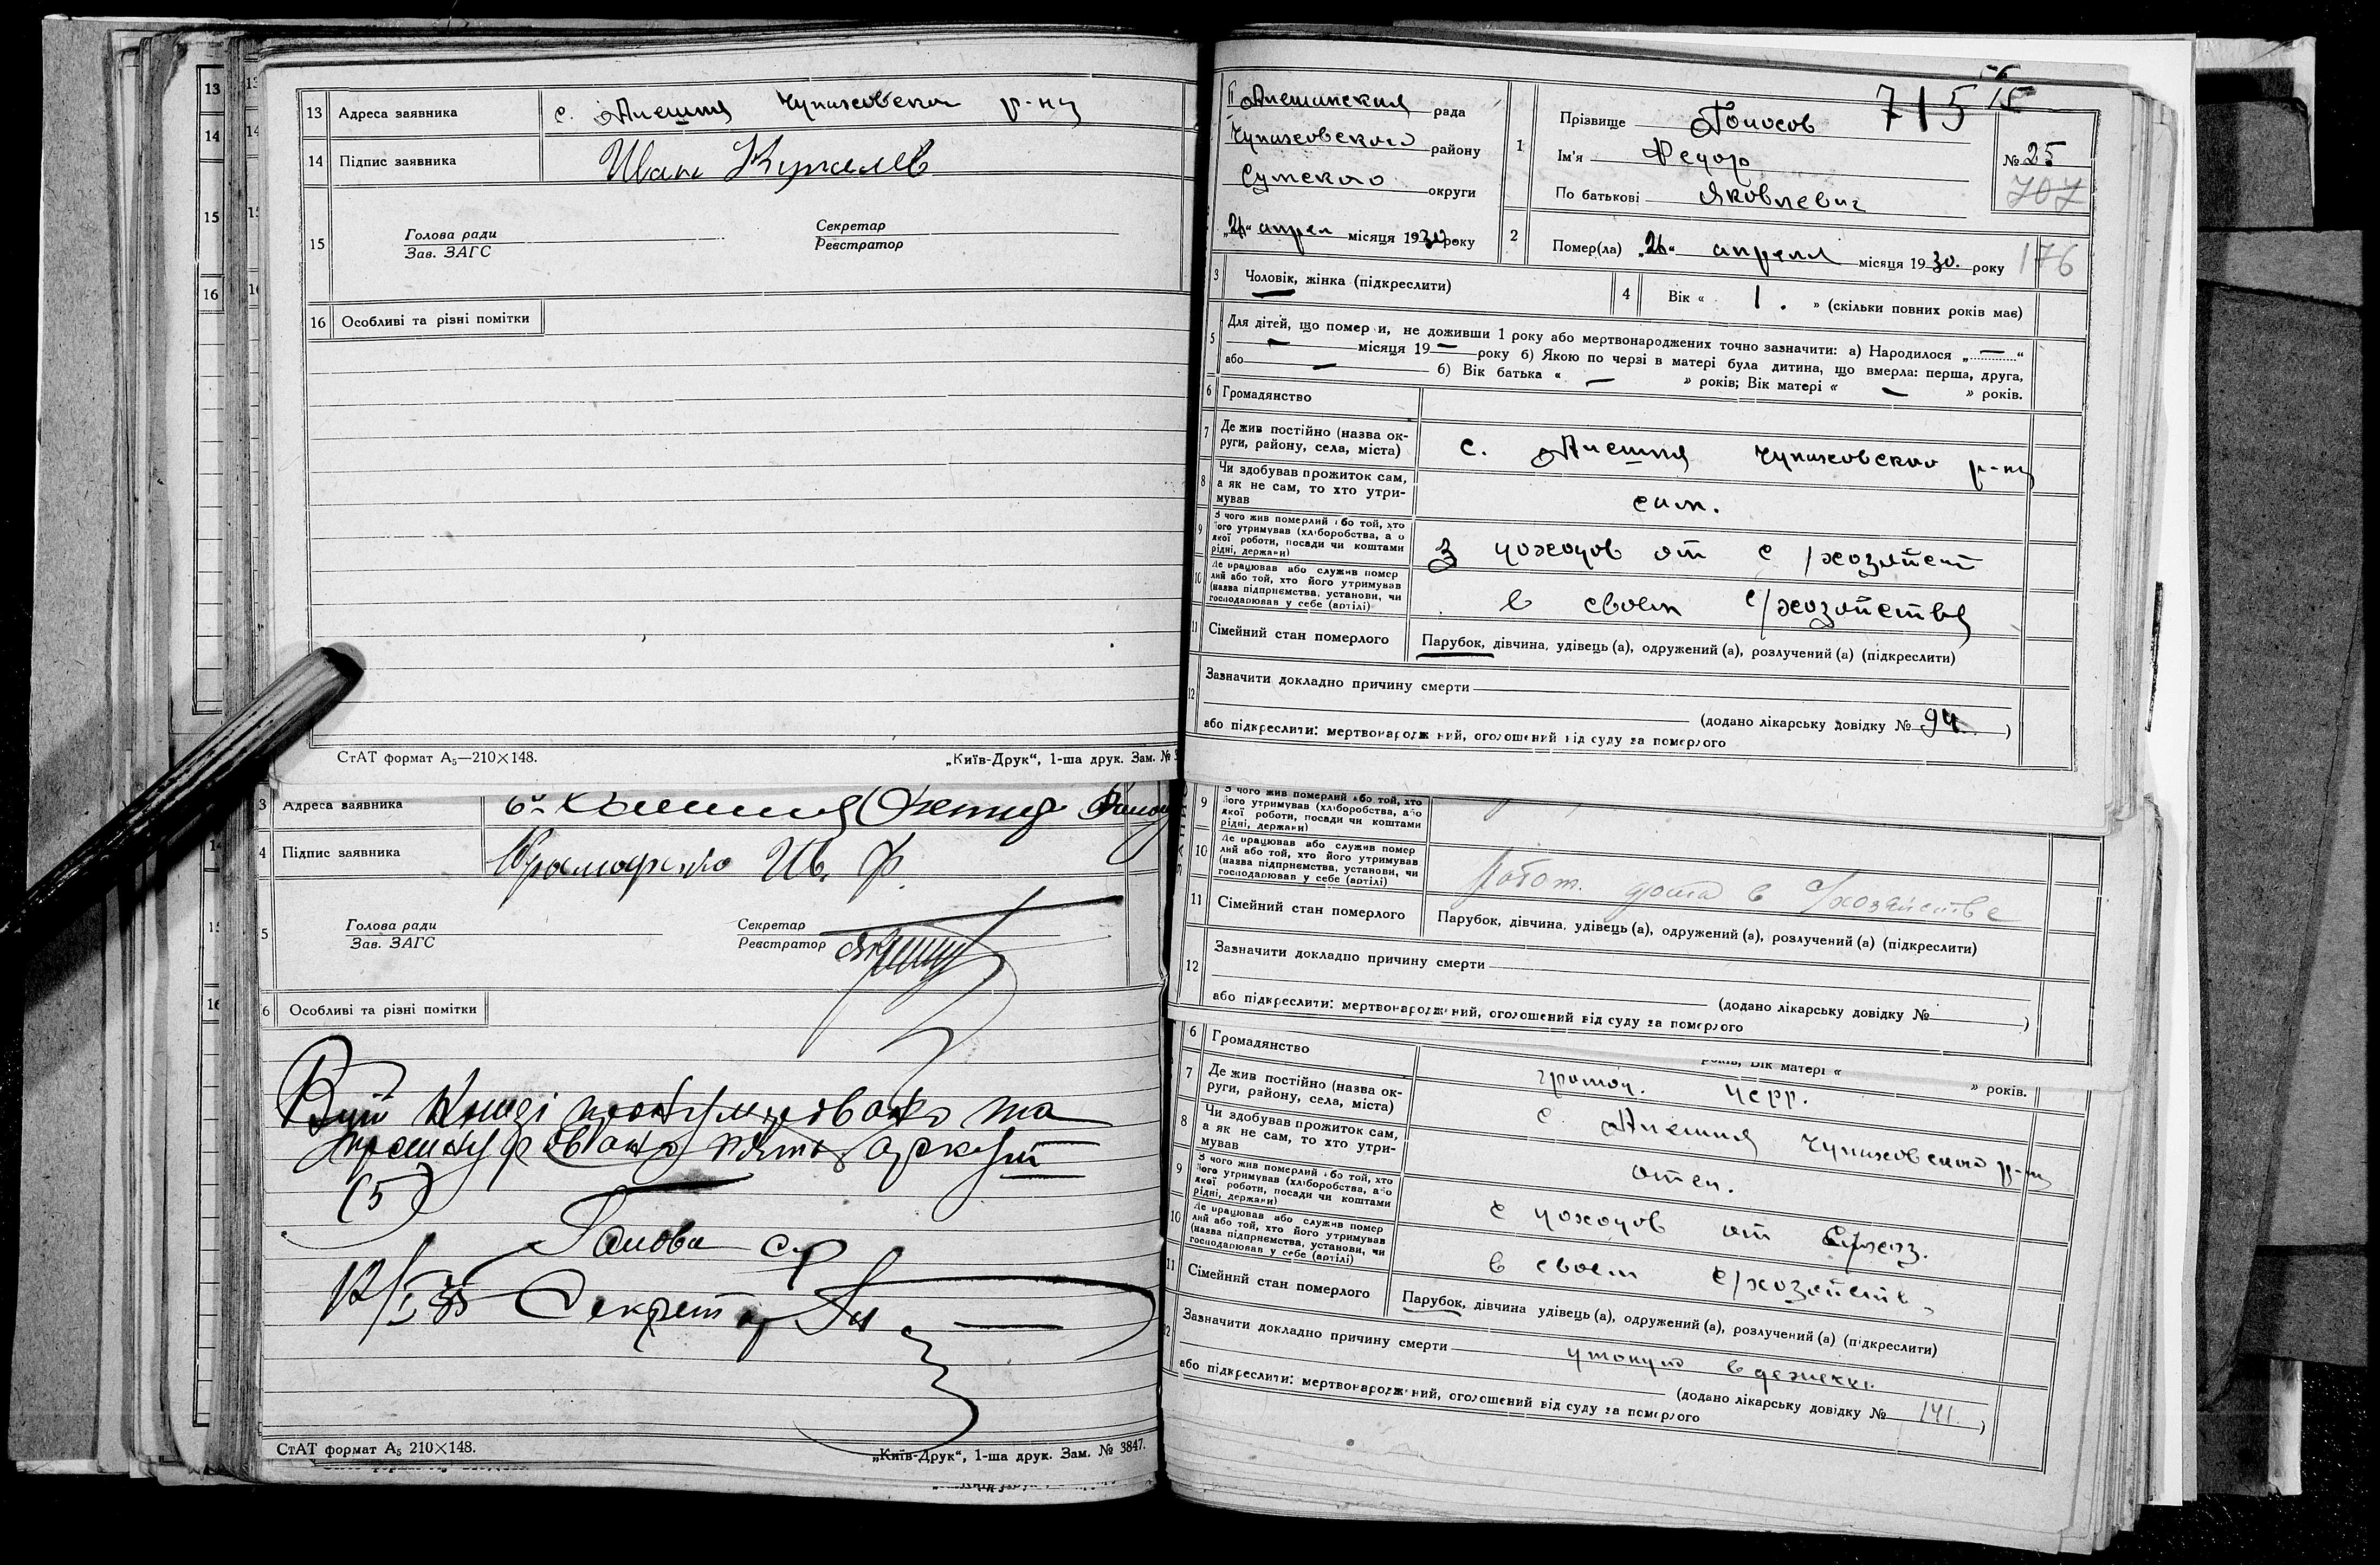 13 Адреса заявника с. Алешня Чупаховского р-на
14 Підпис заявника Иван
15 Голова ради
Зав. ЗАГС
Секретар
Реєстратор
16 Особливі та різні помітки
СтАТ формат А₅—210×148.
„Київ-Друк“, 1-ша друк. Зам. №
3 Адреса заявника
4 Підпис заявника Ив. Ф.
5 Голова ради
Зав. ЗАГС
Секретар
Реєстратор
6 Особливі та різні помітки
Всій Книзі пронумеровано та
прошнуровано п'ять аркуш
(5)
Голова с/р
Секретар
СтАТ формат А₅ 210×148.
„Київ-Друк“, 1-ша друк. Зам. № 3847.
715
Алешанская рада
Чупаховского району
Сумского округи
„21“ апрел місяця 1930 року
1 Прізвище
Ім'я Федор
По батькові Яковлевич
№ 25
707
176
2 Помер(ла) „21“ апреля місяця 1930. року
3 Чоловік, жінка (підкреслити)
4 Вік « 1. » (скільки повних років має)
5 Для дітей, що померли, не доживши 1 року або мертвонароджених точно зазначити: а) Народилося „—“
— місяця 19— року б) Якою по черзі в матері була дитина, що вмерла: перша, друга,
або — б) Вік батька « — » років; Вік матері « — » років.
6 Громадянство
7 Де жив постійно (назва ок-
руги, району, села, міста) с. Алешня Чупаховского р-на
8 Чи здобував прожиток сам,
а як не сам, то хто утри-
мував сам.
9 З чого жив померлий або той, хто
його утримував (хліборобства, або
якої роботи, посади чи коштами
рідні, держави) З доходов от с/хозяйст
10 Де працював або служив помер
лий або той, хто його утримував
(назва підприємства, установи, чи
господарював у себе (артілі) в своем с/хозяйстве
11 Сімейний стан померлого Парубок, дівчина, удівець (а), одружений (а), розлучений (а) (підкреслити)
12 Зазначити докладно причину смерти
(додано лікарську довідку № 94)
або підкреслити: мертвонароджений, оголошений від суду за померлого
9 З чого жив померлий або той, хто
його утримував (хліборобства, або
якої роботи, посади чи коштами
рідні, держави)
10 Де працював або служив помер
лий або той, хто його утримував
(назва підприємства, установи, чи
господарював у себе (артілі) Работ. дома в с/хозяйстве
11 Сімейний стан померлого Парубок, дівчина, удівець (а), одружений (а), розлучений (а) (підкреслити)
12 Зазначити докладно причину смерти
(додано лікарську довідку № )
або підкреслити: мертвонароджений, оголошений від суду за померлого
років; Вік матері « » років.
6 Громадянство
7 Де жив постійно (назва ок-
руги, району, села, міста) с. Алешня Чупаховского р-на
8 Чи здобував прожиток сам,
а як не сам, то хто утри-
мував отец.
9 З чого жив померлий або той, хто
його утримував (хліборобства, або
якої роботи, посади чи коштами
рідні, держави) с доходов от с/хоз.
10 Де працював або служив помер
лий або той, хто його утримував
(назва підприємства, установи, чи
господарював у себе (артілі) в своем с/хозяйств
11 Сімейний стан померлого Парубок, дівчина удівець (а), одружений (а), розлучений (а) (підкреслити)
12 Зазначити докладно причину смерти утонул в
(додано лікарську довідку № 141.)
або підкреслити: мертвонароджений, оголошений від суду за померлого